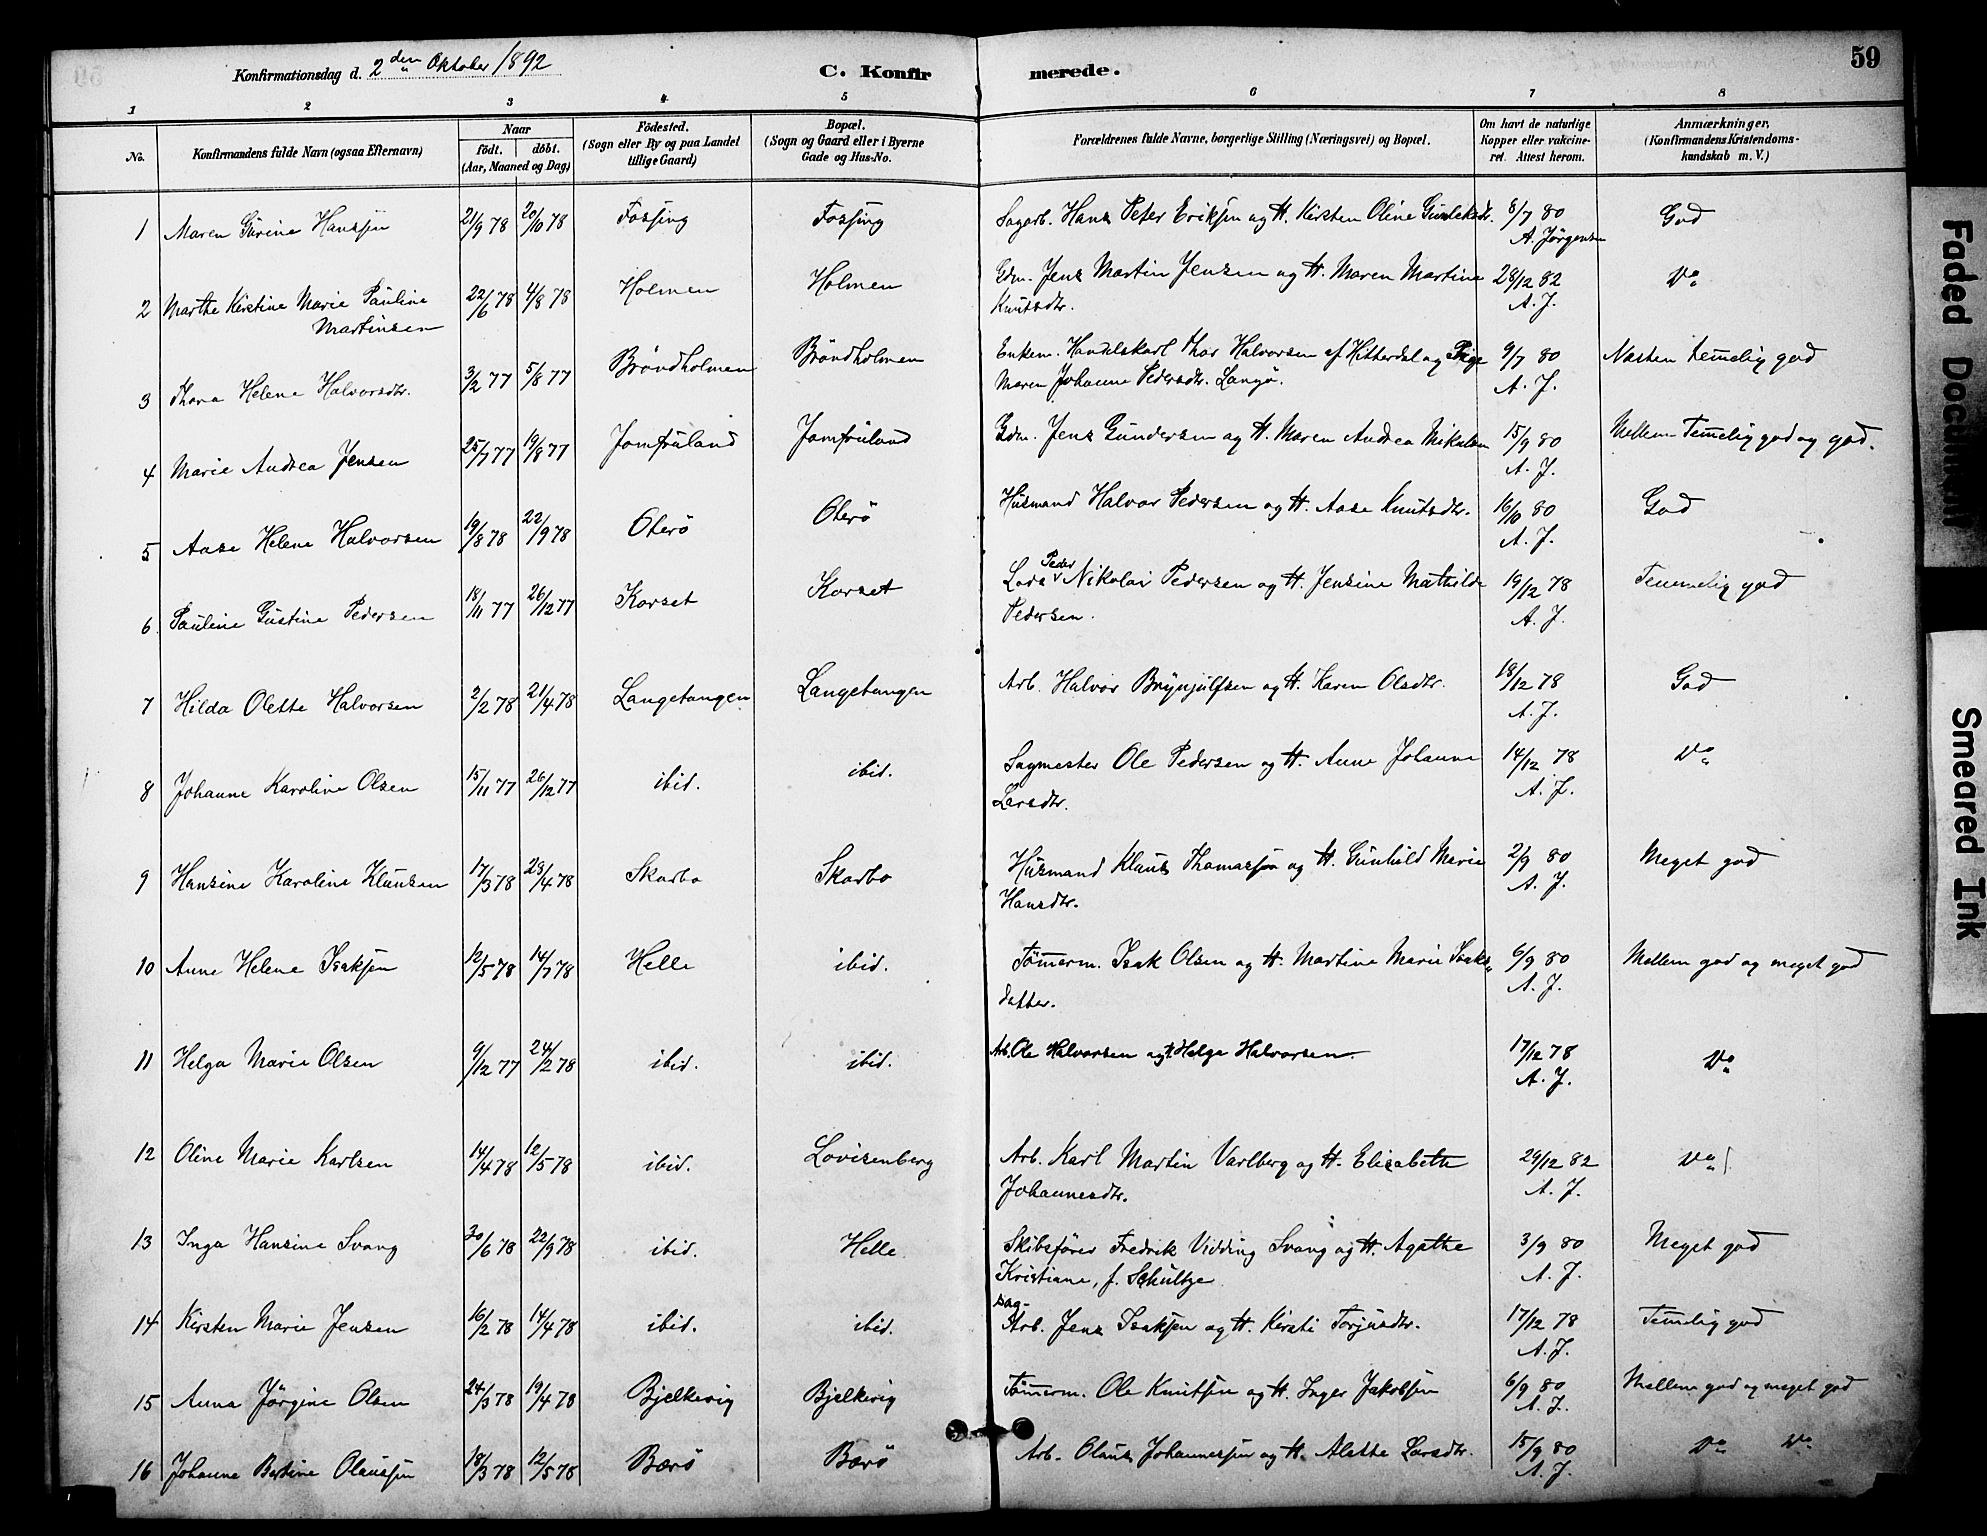 59
Konfirmationsdag d. 2den Oktober 1892 C. Konfirmerede.
1 2 3 4 5 6 7 8
No. Konfirmandens fulde Navn (ogsaa Efternavn) Naar födt. döbt. (Aar, Maaned og Dag) Födested. (Sogn eller By og paa Landet tillige Gaard) Bopæl. (Sogn og Gaard eller i Byerne Gade og Hus-No. Forældrenes fulde Navne, borgerlige Stilling (Næringsvei) og Bopæl. Om havt de naturlige Kopper eller vakcineret. Attest herom. Anmærkninger, (Konfirmandens Kristendomskundskab m. V.)
1 Maren Gurine Hanssen 21/9 78 20/10 78 Fossing Fossing Sagarb. Hans Peter Eriksen og H. Kirsten Oline Gunleksdr. 8/7 80 God
A. Jörgensen
2 Marthe Kirstine Marie Pauline 22/6 78 4/8 78 Holmen Holmen Gdm. Jens Martin Jensen og H. Maren Martine 28/12 82 Do
Martinsen Knutsdtr. A. J.
3 Thora Helene Halvorsdtr. 3/2 77 5/8 77 Bröndholmen Bröndholmen Enkem. Handelskarl Thor Halvorsen af Hitterdal og Pige 9/7 80 Næsten temelig god
Maren Johanne Pedersdtr. Langö. A. J.
4 Marie Andrea Jensen 25/7 77 19/8 77 Jomfruland Jomfruland Gdm. Jens Gundersen og H. Maren Andrea Nikolsen 15/9 80 Mellem Temelig god og god.
A. J.
5 Aase Helene Halvorsen 19/8 78 22/9 78 Oterö Oterö Husmand Halvor Pedersen og H. Aase Knutsdtr. 16/10 80 God
A. J.
6 Pauline Gustine Pedersen 18/11 77 26/12 77 Korset Korset Lods Peder Nikolai Pedersen og H. Jensine Mathilde 19/12 78 Temmelig god
Pedersen. A. J.
7 Hilda Olette Halvorsen 2/2 78 21/4 78 Langetangen Langetangen Arb. Halvor Brynjulfsen og H. Karen Olsdtr. 18/12 78 God
A. J.
8 Johanne Karoline Olsen 15/11 77 26/12 77 ibid. ibid. Sagmester Ole Pedersen og H. Anne Johanne 14/12 78 Do
Larsdtr. A. J.
9 Hansine Karoline Klausen 17/3 78 28/4 78 Skarbo Skarbo Husmand Klaus Thomassen og H. Gunhild Marie 2/9 80 Meget god
Hansdtr. A. J.
10 Anne Helene Isaksen 12/5 78 14/7 78 Helle ibid. Tömerm. Isak Olsen og H. Martine Marie Isaks- 6/9 80 Mellem god og meget god
datter. A. J.
11 Helga Marie Olsen 9/12 77 24/2 78 ibid. ibid. Arb. Ole Halvorsen og H. Helge Halvorsen. 17/12 78 Do
A. J.
12 Oline Marie Karlsen 14/4 78 12/5 78 ibid. Lovisenberg Arb. Karl Martin Varlberg og H. Elisabeth 29/12 82 Do
Johannesdtr. A. J.
13 Inga Hansine Svang 30/6 78 22/9 78 ibid. Helle Skibsförer Fredrik Vidding Svang og H. Agathe 3/9 80 Meget god
Kristiane, f. Schultze A. J.
14 Kirsten Marie Jensen 16/2 78 14/4 78 ibid. ibid. Sag-Arb. Jens Isaksen og H. Kirsti Torjusdtr. 17/12 78 Temelig god
A. J.
15 Anna Jörgine Olsen 24/3 78 19/4 78 Bjelkevig Bjelkevig Tömerm. Ole Knutsen og H. Inger Jakobsen 6/9 80 Mellem god og meget god
A. J.
16 Johanne Bertine Olaussen 18/3 78 12/5 78 Bærö Bærö Arb. Olaus Johannessen og H. Alette Larsdtr. 15/9 80 Do Do
A. J.
Faded Document
Smeared Ink